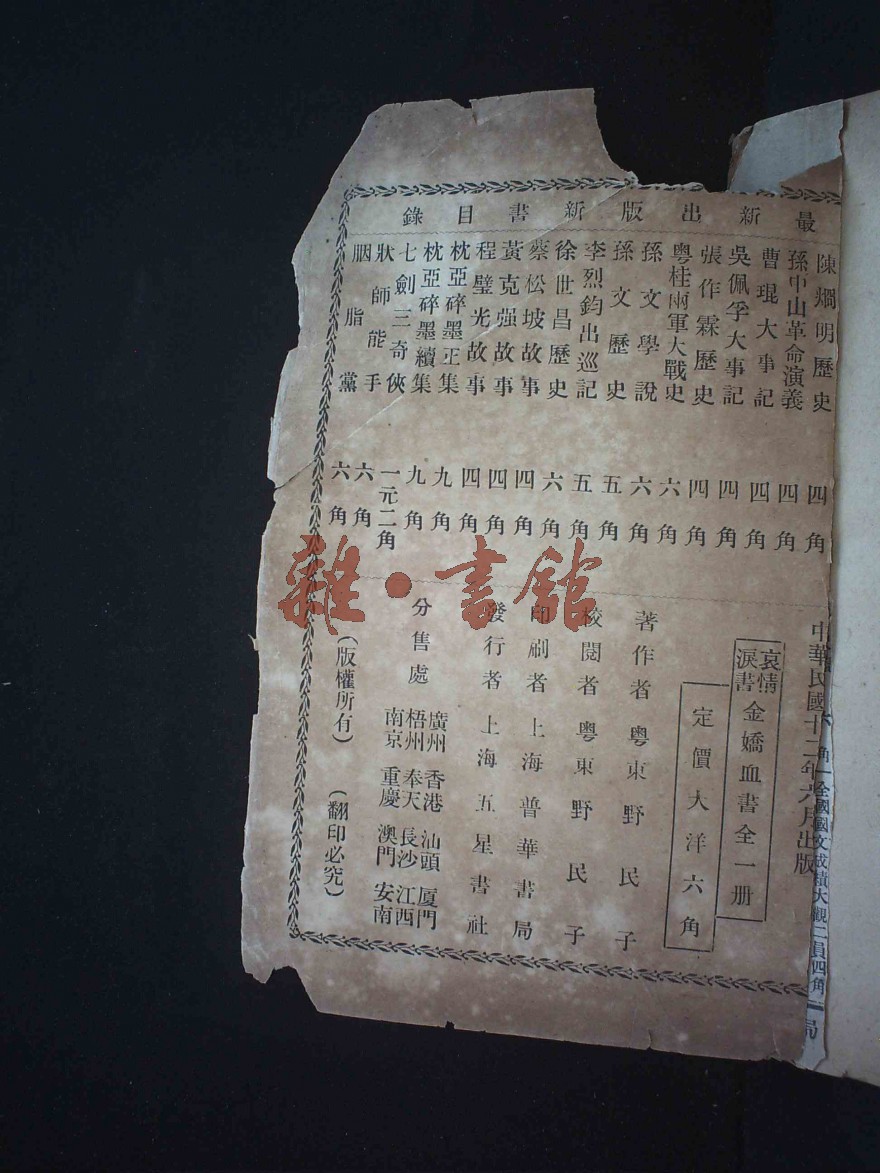 最新出版新書目錄
陳烱明歷史 四角
孫中山革命演義 四角
曹琨大事記 四角
吳佩孚大事記 四角
張作霖歷史 四角
粵桂兩軍大戰史 六角
孫文學說 六角
孫文歷史 五角
李烈鈞出巡記 五角
徐世昌歷史 六角
蔡松坡故事 四角
黃克强故事 四角
程璧光故事 四角
枕亞碎墨正集 九角
枕亞碎墨續集 九角
七劍三奇俠 一元二角
狀師能手 六角
胭脂黨 六角
中華民國十二年六月出版
哀情淚書 金嬌血書全一册
定價大洋六角
著作者 粵東野民子
校閱者 粵東野民子
印刷者 上海普華書局
發行者 上海五星書社
分售處
廣州 香港 汕頭 厦門
梧州 奉天 長沙 江西
南京 重慶 澳門 安南
(版權所有) (翻印必究)
角一全國國文成績大觀二員四角
局
雜·書館